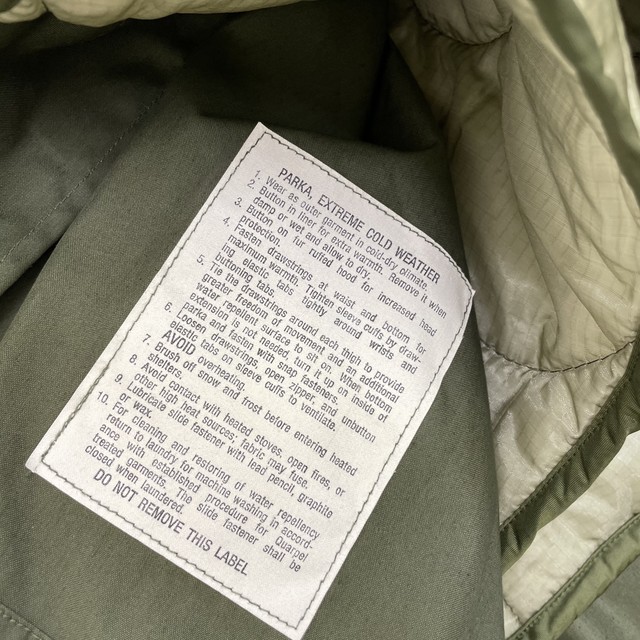 PARKA, EXTREME COLD WEATHER
1. Wear as outer garment in cold-dry climate.
2. Button in liner for extra warmth. Remove it when
damp or wet and allow to dry.
3. Button on fur ruffed hood for increased head
protection.
4. Fasten drawstrings at waist and bottom for
maximum warmth. Tighten sleeve cuffs by draw-
ing elastic tabs tightly around wrists and
buttoning tabs.
5. Tie the drawstrings around each thigh to provide
greater freedom of movement and an additional
water repellent surface to sit on. When bottom
extension is not needed, turn it up on inside of
parka and fasten with snap fasteners.
6. Loosen drawstrings, open zipper, and unbutton
elastic tabs on sleeve cuffs to ventilate.
AVOID overheating.
7. Brush off snow and frost before entering heated
shelters.
8. Avoid contact with heated stoves, open fires, or
other high heat sources; fabric may fuse.
9. Lubricate slide fastener with lead pencil, graphite
or wax.
10. For cleaning and restoring of water repellency
return to laundry for machine washing in accord-
ance with established procedure for Quarpel
treated garments. The slide fastener shall be
closed when laundered.
DO NOT REMOVE THIS LABEL